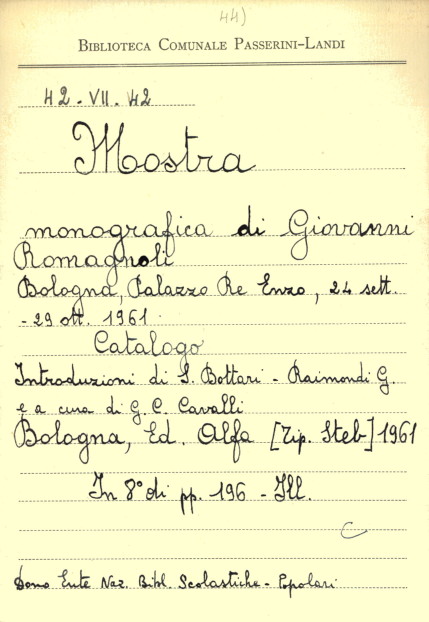 44)
BIBLIOTECA COMUNALE PASSERINI-LANDI
42-VII.42
Mostra
monografica di Giovanni
Romagnoli
Bologna, Palazzo Re Enzo, 24 sett.
-29 ott. 1961.
Catalogo
Introduzioni di S. Bottari - Raimondi G.
e a cura di G. C. Cavalli
Bologna, Ed. Alfa [Tip. Steb] 1961
In 8° di pp. 196 - Ill.
C
Dono Ente Naz. Bibl. Scolastiche - Popolari